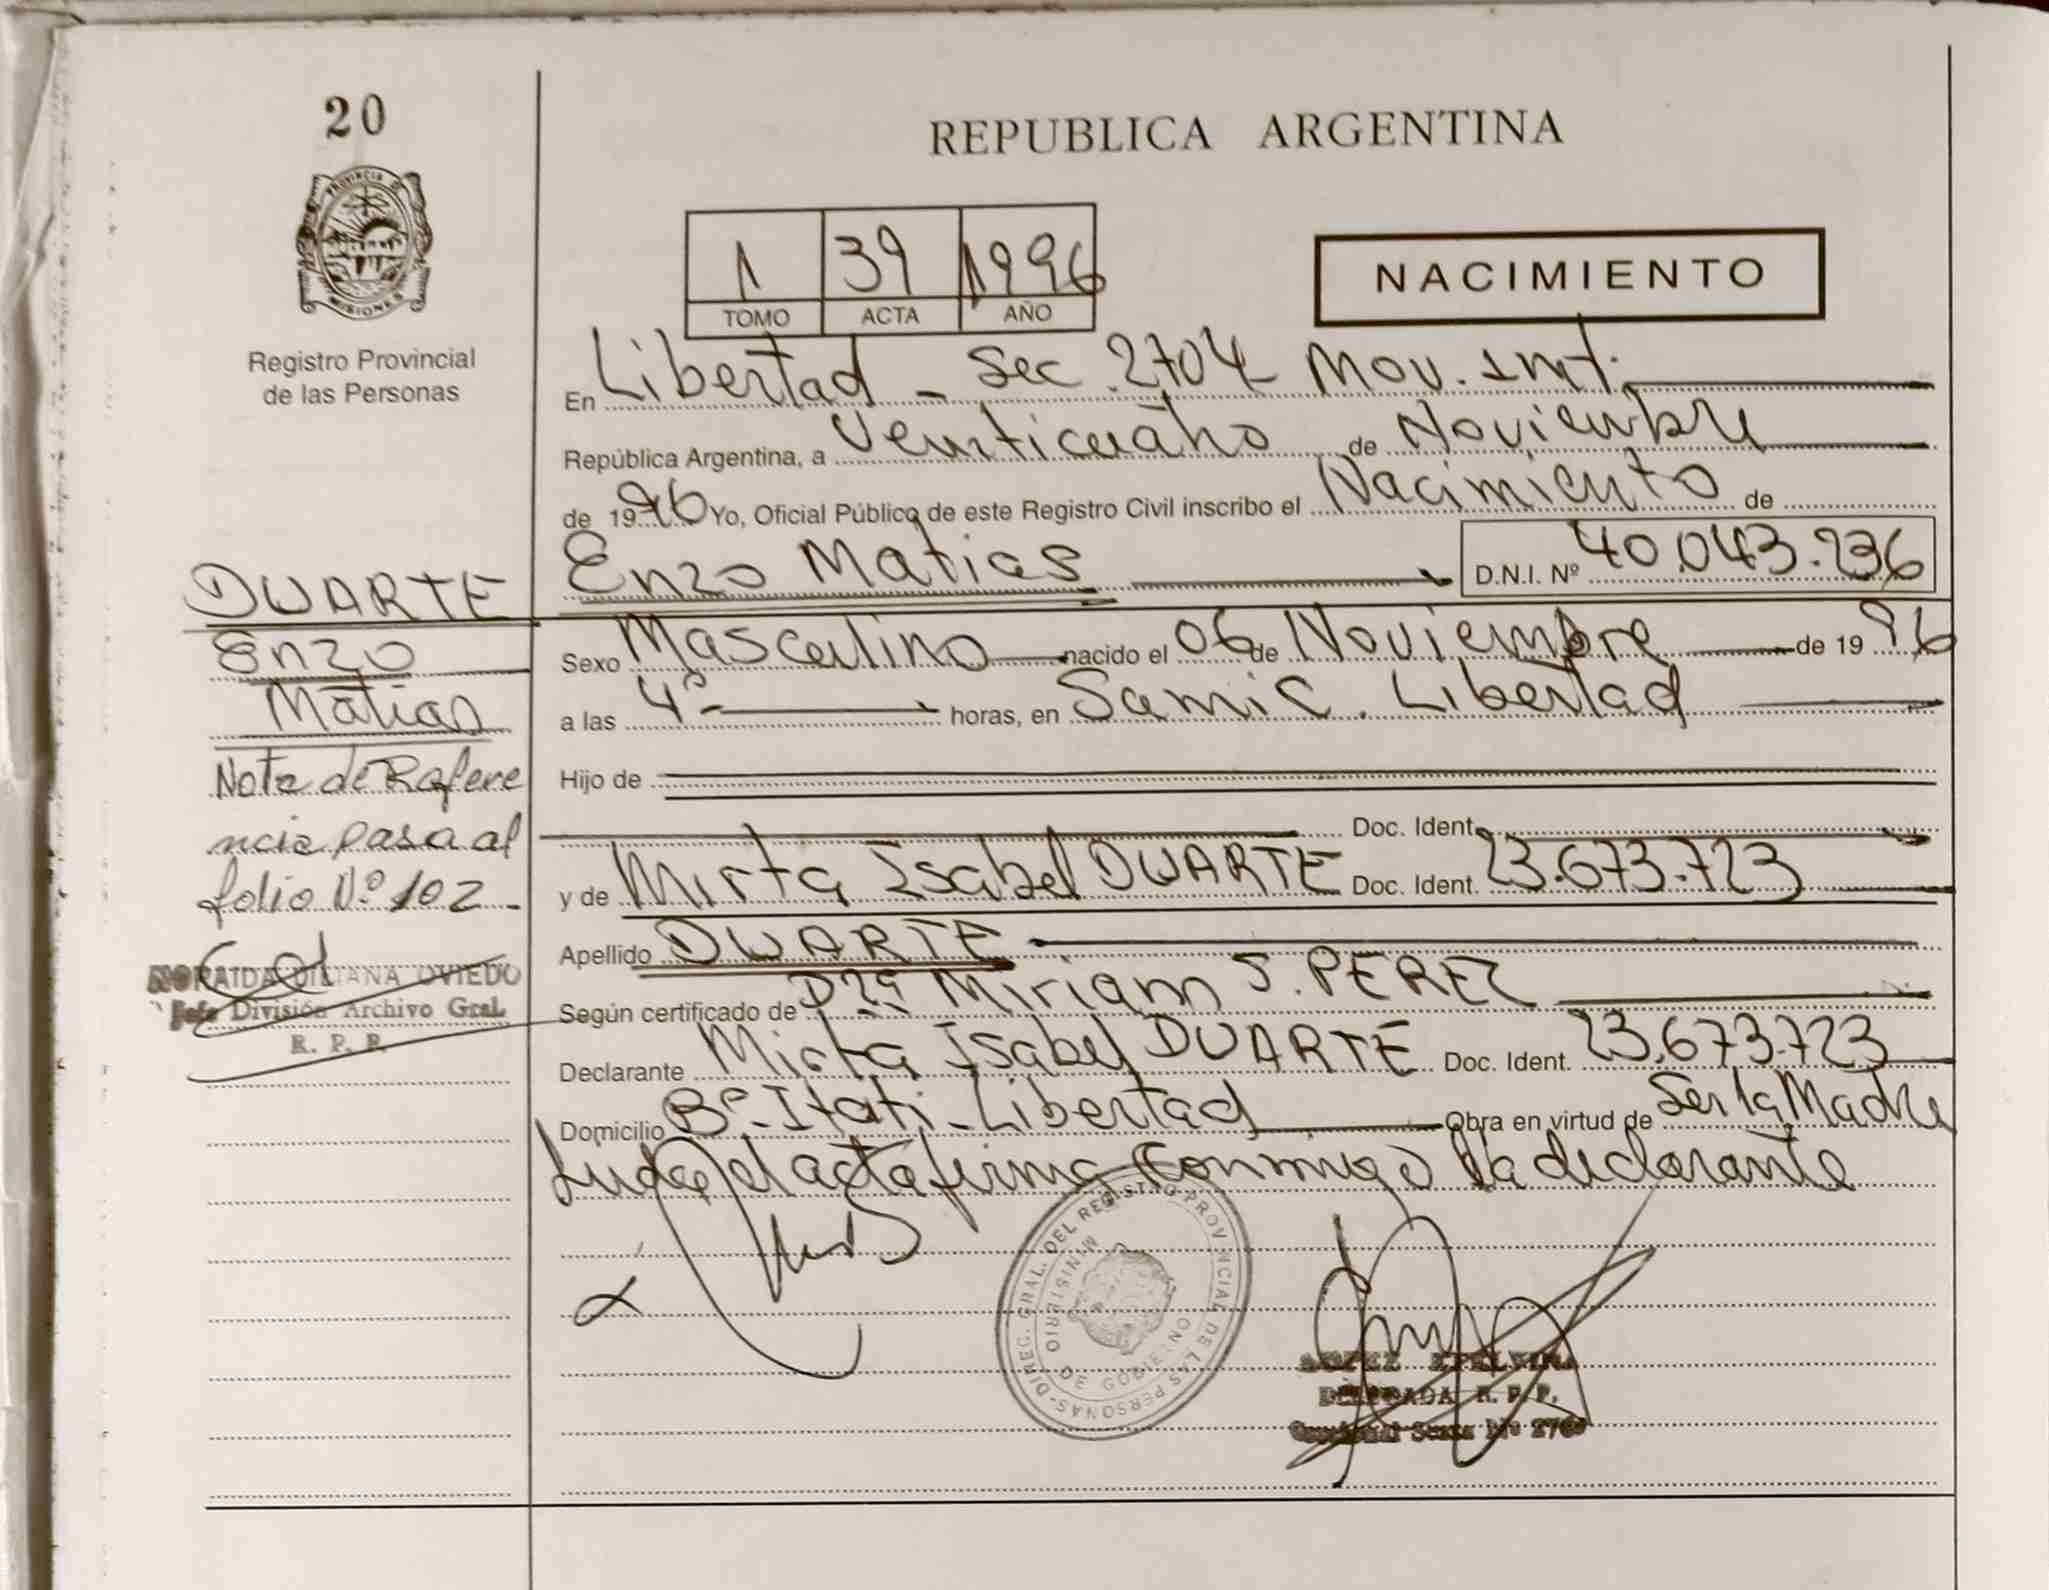 20
REPUBLICA ARGENTINA
PROVINCIA DE
MISIONES
Registro Provincial
de las Personas
1 39 1996
TOMO ACTA AÑO
NACIMIENTO
En Libertad - Sec. 2704 Mov. 1
República Argentina, a Veinticuatro de Noviembre
de 1996 Yo, Oficial Público de este Registro Civil inscribo el Nacimiento de
Enzo Matias D.N.I. Nº 40.043.236
Sexo Masculino nacido el 06 de Noviembre de 1996
a las 4º- horas, en Samic. Libertad
Hijo de
Doc. Ident.
y de Mirta Isabel DUARTE Doc. Ident. 23.673.723
Apellido DUARTE
Según certificado de Miriam S. PEREZ
Declarante Mirta Isabel DUARTE Doc. Ident. 23.673.723
Domicilio Bº-Itati-Libertad Obra en virtud de Ser la Madre
el acta firma conmigo la declarante
DUARTE
Enzo
Matias
Nota de Refere
ncia pasa al
folio Nº 102-
NORAIDA LILIANA OVIEDO
Jefe División Archivo Gral.
R. P. P.
DIREC. GRAL. DEL REGISTRO PROVINCIAL DE LAS PERSONAS-
MINISTERIO DE GOBIERNO
DELEGADA R. P. P.